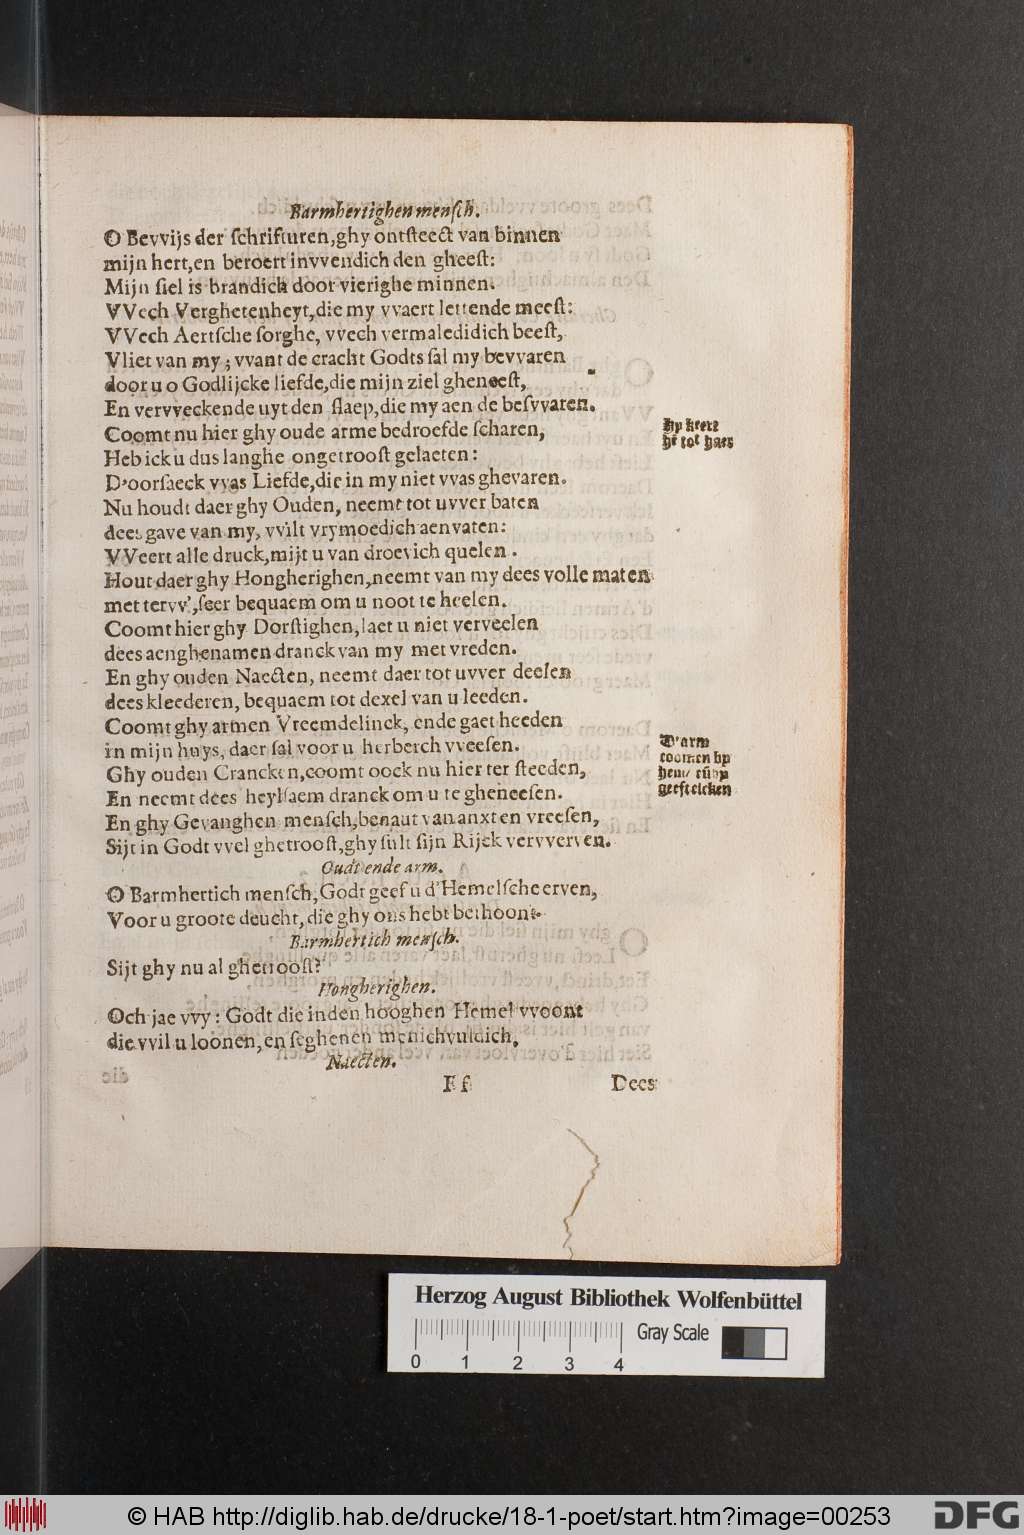 Barmhertighen menſch.
O Bevvijs der ſchrifturen,ghy ontſteect van binnen
mijn hert,en beroert invvendich den gheeſt:
Mijn ſiel is brandich door vierighe minnen.
VVech Verghetenheyt,die my vvaert lettende meeſt:
VVech Aertſche ſorghe, vvech vermaledidich beeſt,
Vliet van my ; vvant de cracht Godts ſal my bevvaren
door u o Godlijcke liefde,die mijn ziel gheneeſt,
En vervveckende uyt den ſlaep,die my aen de beſvvaren.
Coomt nu hier ghy oude arme bedroefde ſcharen,
Heb ick u dus langhe ongetrooſt gelaeten :
D'oorſaeck vvas Liefde,die in my niet vvas ghevaren.
Nu houdt daer ghy Ouden, neemt tot uvver baten
dees gave van my, vvilt vrymoedich aenvaten:
VVeert alle druck,mijt u van droevich quelen .
Hout daer ghy Hongherighen,neemt van my dees volle maten
met tervv',ſeer bequaem om u noot te heelen.
Coomt hier ghy Dorſtighen,laet u niet verveelen
dees aenghenamen dranck van my met vreden.
En ghy ouden Naecten, neemt daer tot uvver deelen
dees kleederen, bequaem tot dexel van u leeden.
Coomt ghy armen Vreemdelinck, ende gaet heeden
in mijn huys, daer ſal voor u herberch vveeſen.
Ghy ouden Crancken,coomt oock nu hier ter ſteeden,
En neemt dees heylſaem dranck om u te gheneeſen.
En ghy Gevanghen menſch,benaut van anxt en vreeſen,
Sijt in Godt vvel ghetrooſt,ghy ſult ſijn Rijck vervverven.
Oudt ende arm.
O Barmhertich menſch,Godt geef u d'Hemelſche erven,
Voor u groote deucht, die ghy ons hebt bethoont.
Barmhertich menſch.
Sijt ghy nu al ghetrooſt?
Hongherighen.
Och jae vvy : Godt die in den hooghen Hemel vvoont
die vvil u loonen,en ſeghenen menichvuldich.
Naecten.
F f Dees
Hy keert
hē tot haer
D'arm
coomen by
geeſtelcken
Herzog August Bibliothek Wolfenbüttel
Gray Scale
0 1 2 3 4
© HAB http://diglib.hab.de/drucke/18-1-poet/start.htm?image=00253
DFG